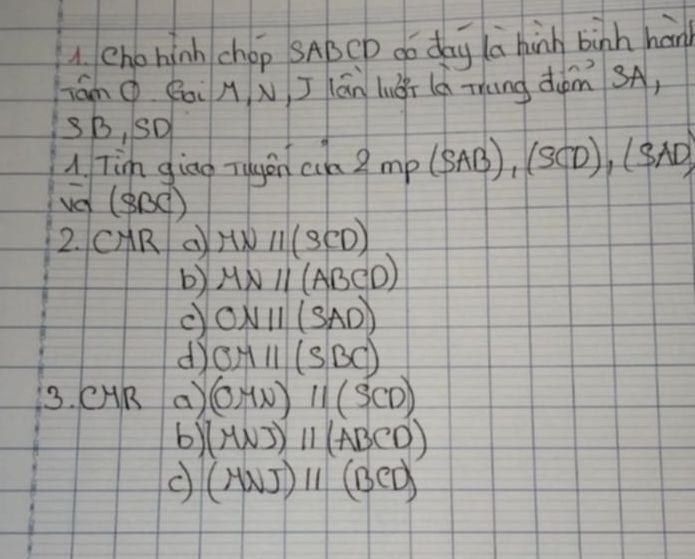 1. Cho hình chóp SABCD có đáy là hình bình hành
Tâm O. Gọi M, N, J lần lượt là Trung điểm SA,
SB, SD
1. Tìm giao Tuyến của 2 mp (SAB), (SCD), (SAD)
và (SBC)
2. CMR a) MN // (SCD)
b) MN // (ABCD)
c) ON // (SAD)
d) OM // (SBC)
3. CMR a) (OMN) // (SCD)
b) (MNJ) // (ABCD)
c) (MNJ) // (BCD)